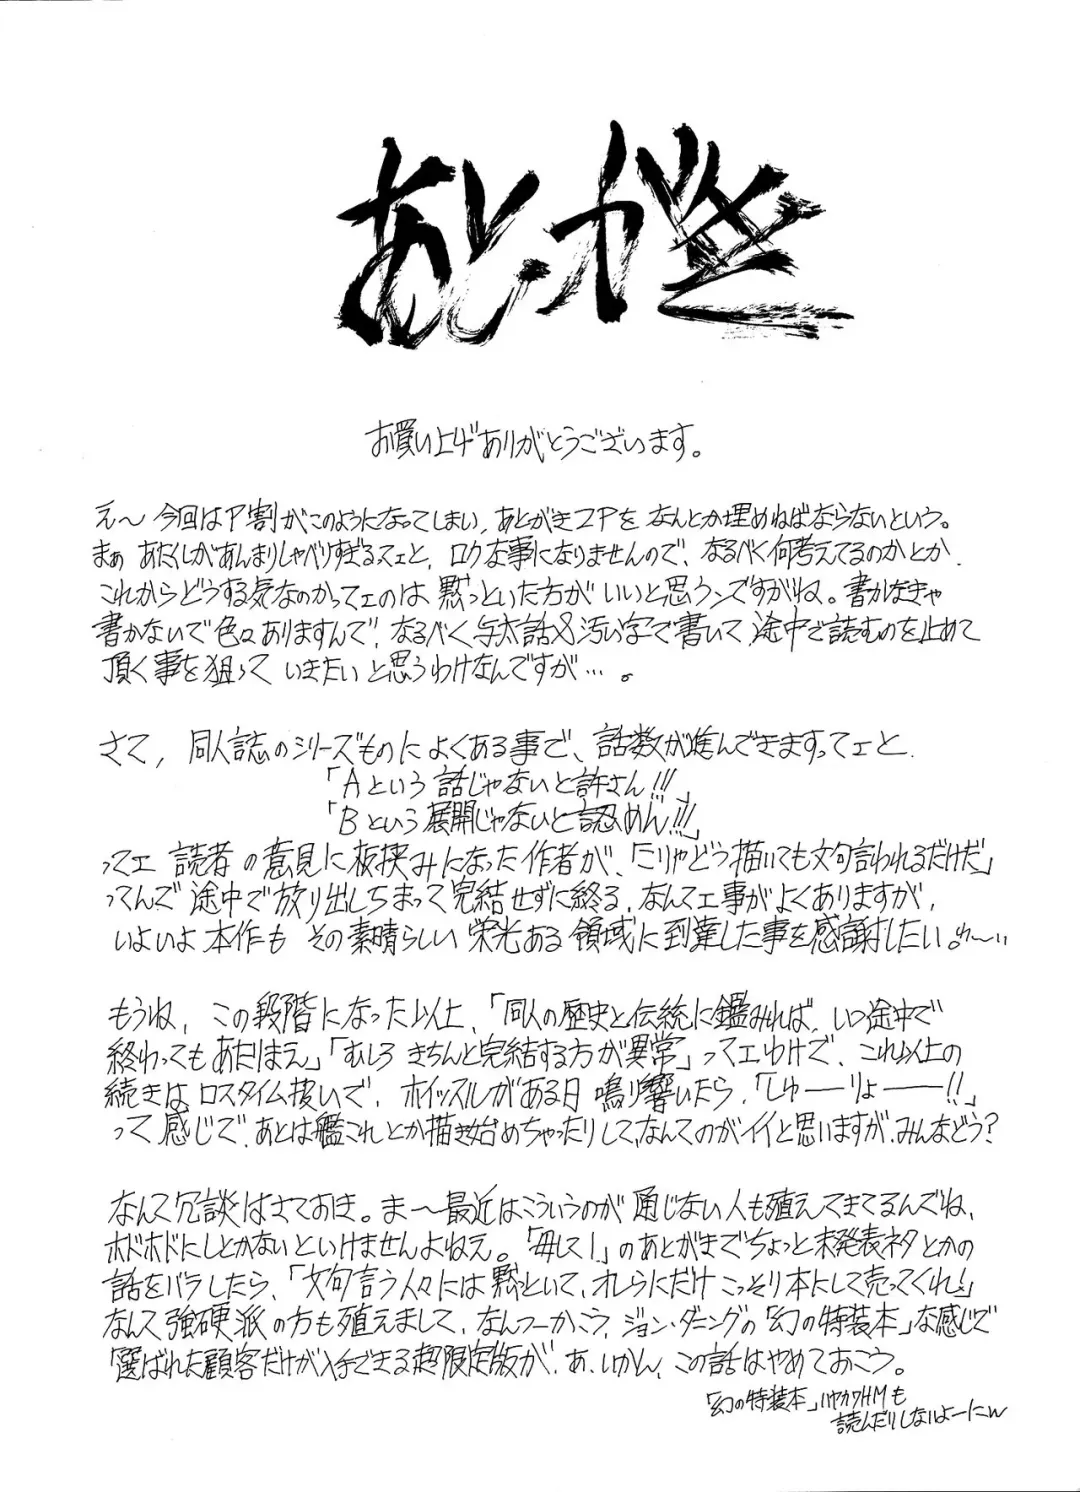 あとがき
お買い上げありがとうございます。
え〜今回はP割がこのようになってしまい、あとがき2Pをなんとか埋めねばならないという。
まぁあたくしがあんまりしゃべりすぎるってェと、ロクな事になりませんので、なるべく何考えてるのかとか
これからどうする気なのかってェのは黙っといた方がいいと思うンですがね。書かなきゃ
書かないで色々ありますんで、なるべく与太話&汚い字で書いて途中で読むのを止めて
頂く事を狙っていきたいと思うわけなんですが…。
さて、同人誌のシリーズものによくある事で、話数が進んできますってェと
「Aという話じゃないと許さん!!!」
「Bという展開じゃないと認めん!!!」
ってェ読者の意見に板挟みになった作者が、「こりゃどう描いても文句言われるだけだ」
ってんで途中で放り出しちまって完結せずに終る、なんてェ事がよくありますが、
いよいよ本作もその素晴らしい栄光ある領域に到達した事を感謝したい
もうね、この段階になった以上、「同人の歴史と伝統に鑑みれば、いつ途中で
終わってもあたりまえ」「むしろきちんと完結する方が異常」ってェわけで、これ以上の
続きはロスタイム扱いで、ホイッスルがある日鳴り響いたら、「しゅーーりょーーー!!」
って感じで、あとは艦これとか描き始めちゃったりして、なんてのがイイと思いますが、みんなどう?
なんて冗談はさておき。ま〜最近はこういうのが通じない人も殖えてきてるんでね、
ホドホドにしとかないといけませんよねえ。「毋して!」のあとがきでちょっと未発表ネタとかの
話をバラしたら、「文句言う人々には黙っといて、オレらにだけこっそり本にして売ってくれ!」
なんて強硬派の方も殖えまして、なんつーかこう、ジョン・ダニングの「幻の特装本」な感じで
「選ばれた顧客だけが入手できる超限定版が、あ、いかん、この話はやめておこう。
「幻の特装本」ハヤカワHMも
読んだりしないよーにw